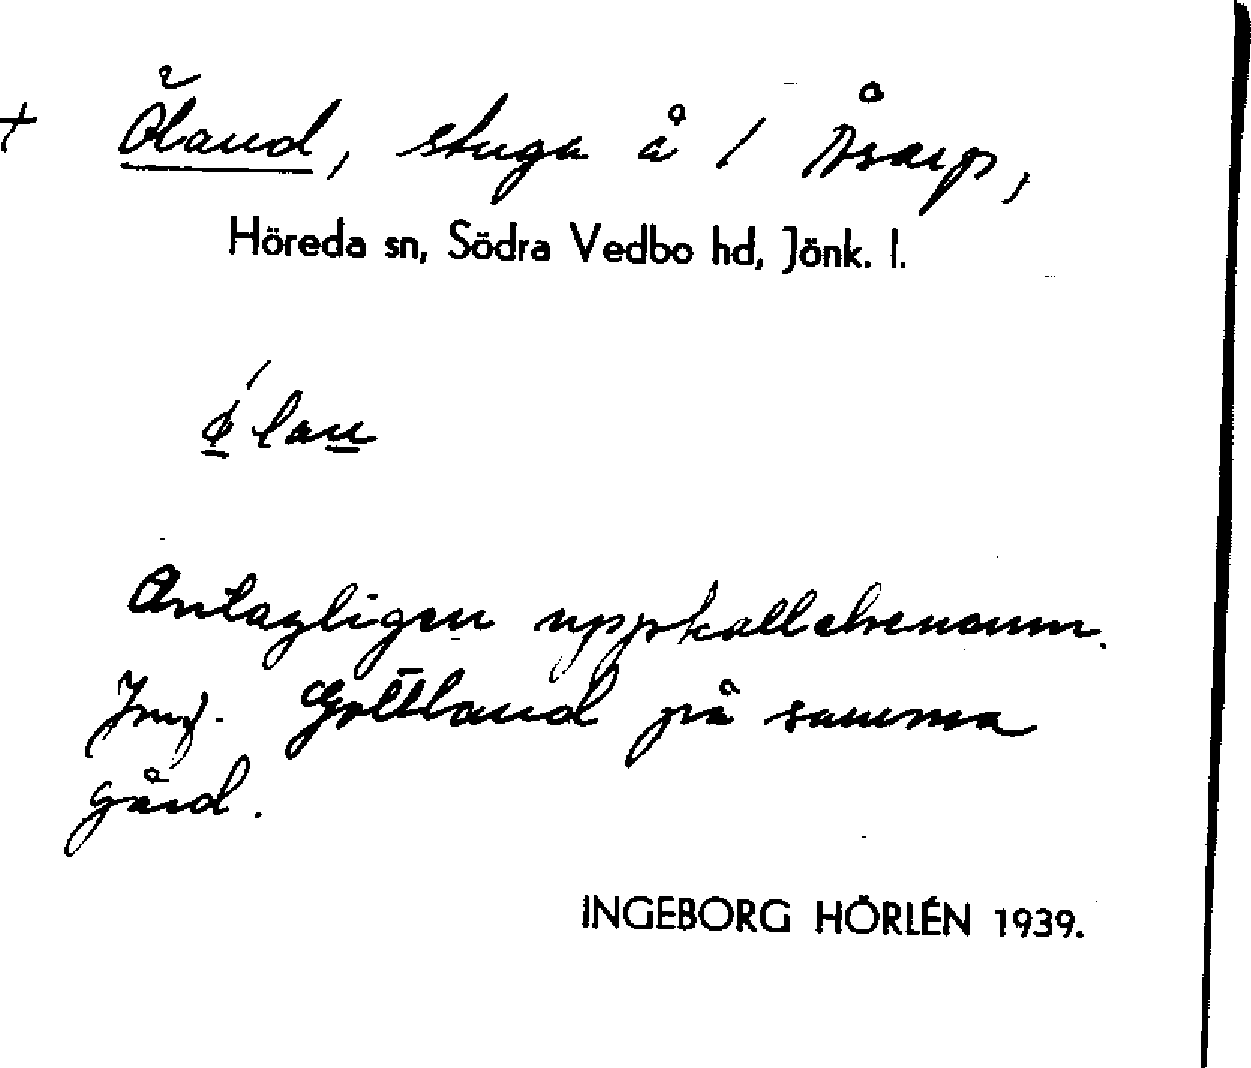 + Öland, stuga å / Åsarp,
Höreda sn, Södra Vedbo hd, Jönk. l.
ǿ lan
Antagligen uppkallelsenamn.
Jmf. Gottland på samma
gård.
INGEBORG HÖRLÉN 1939.